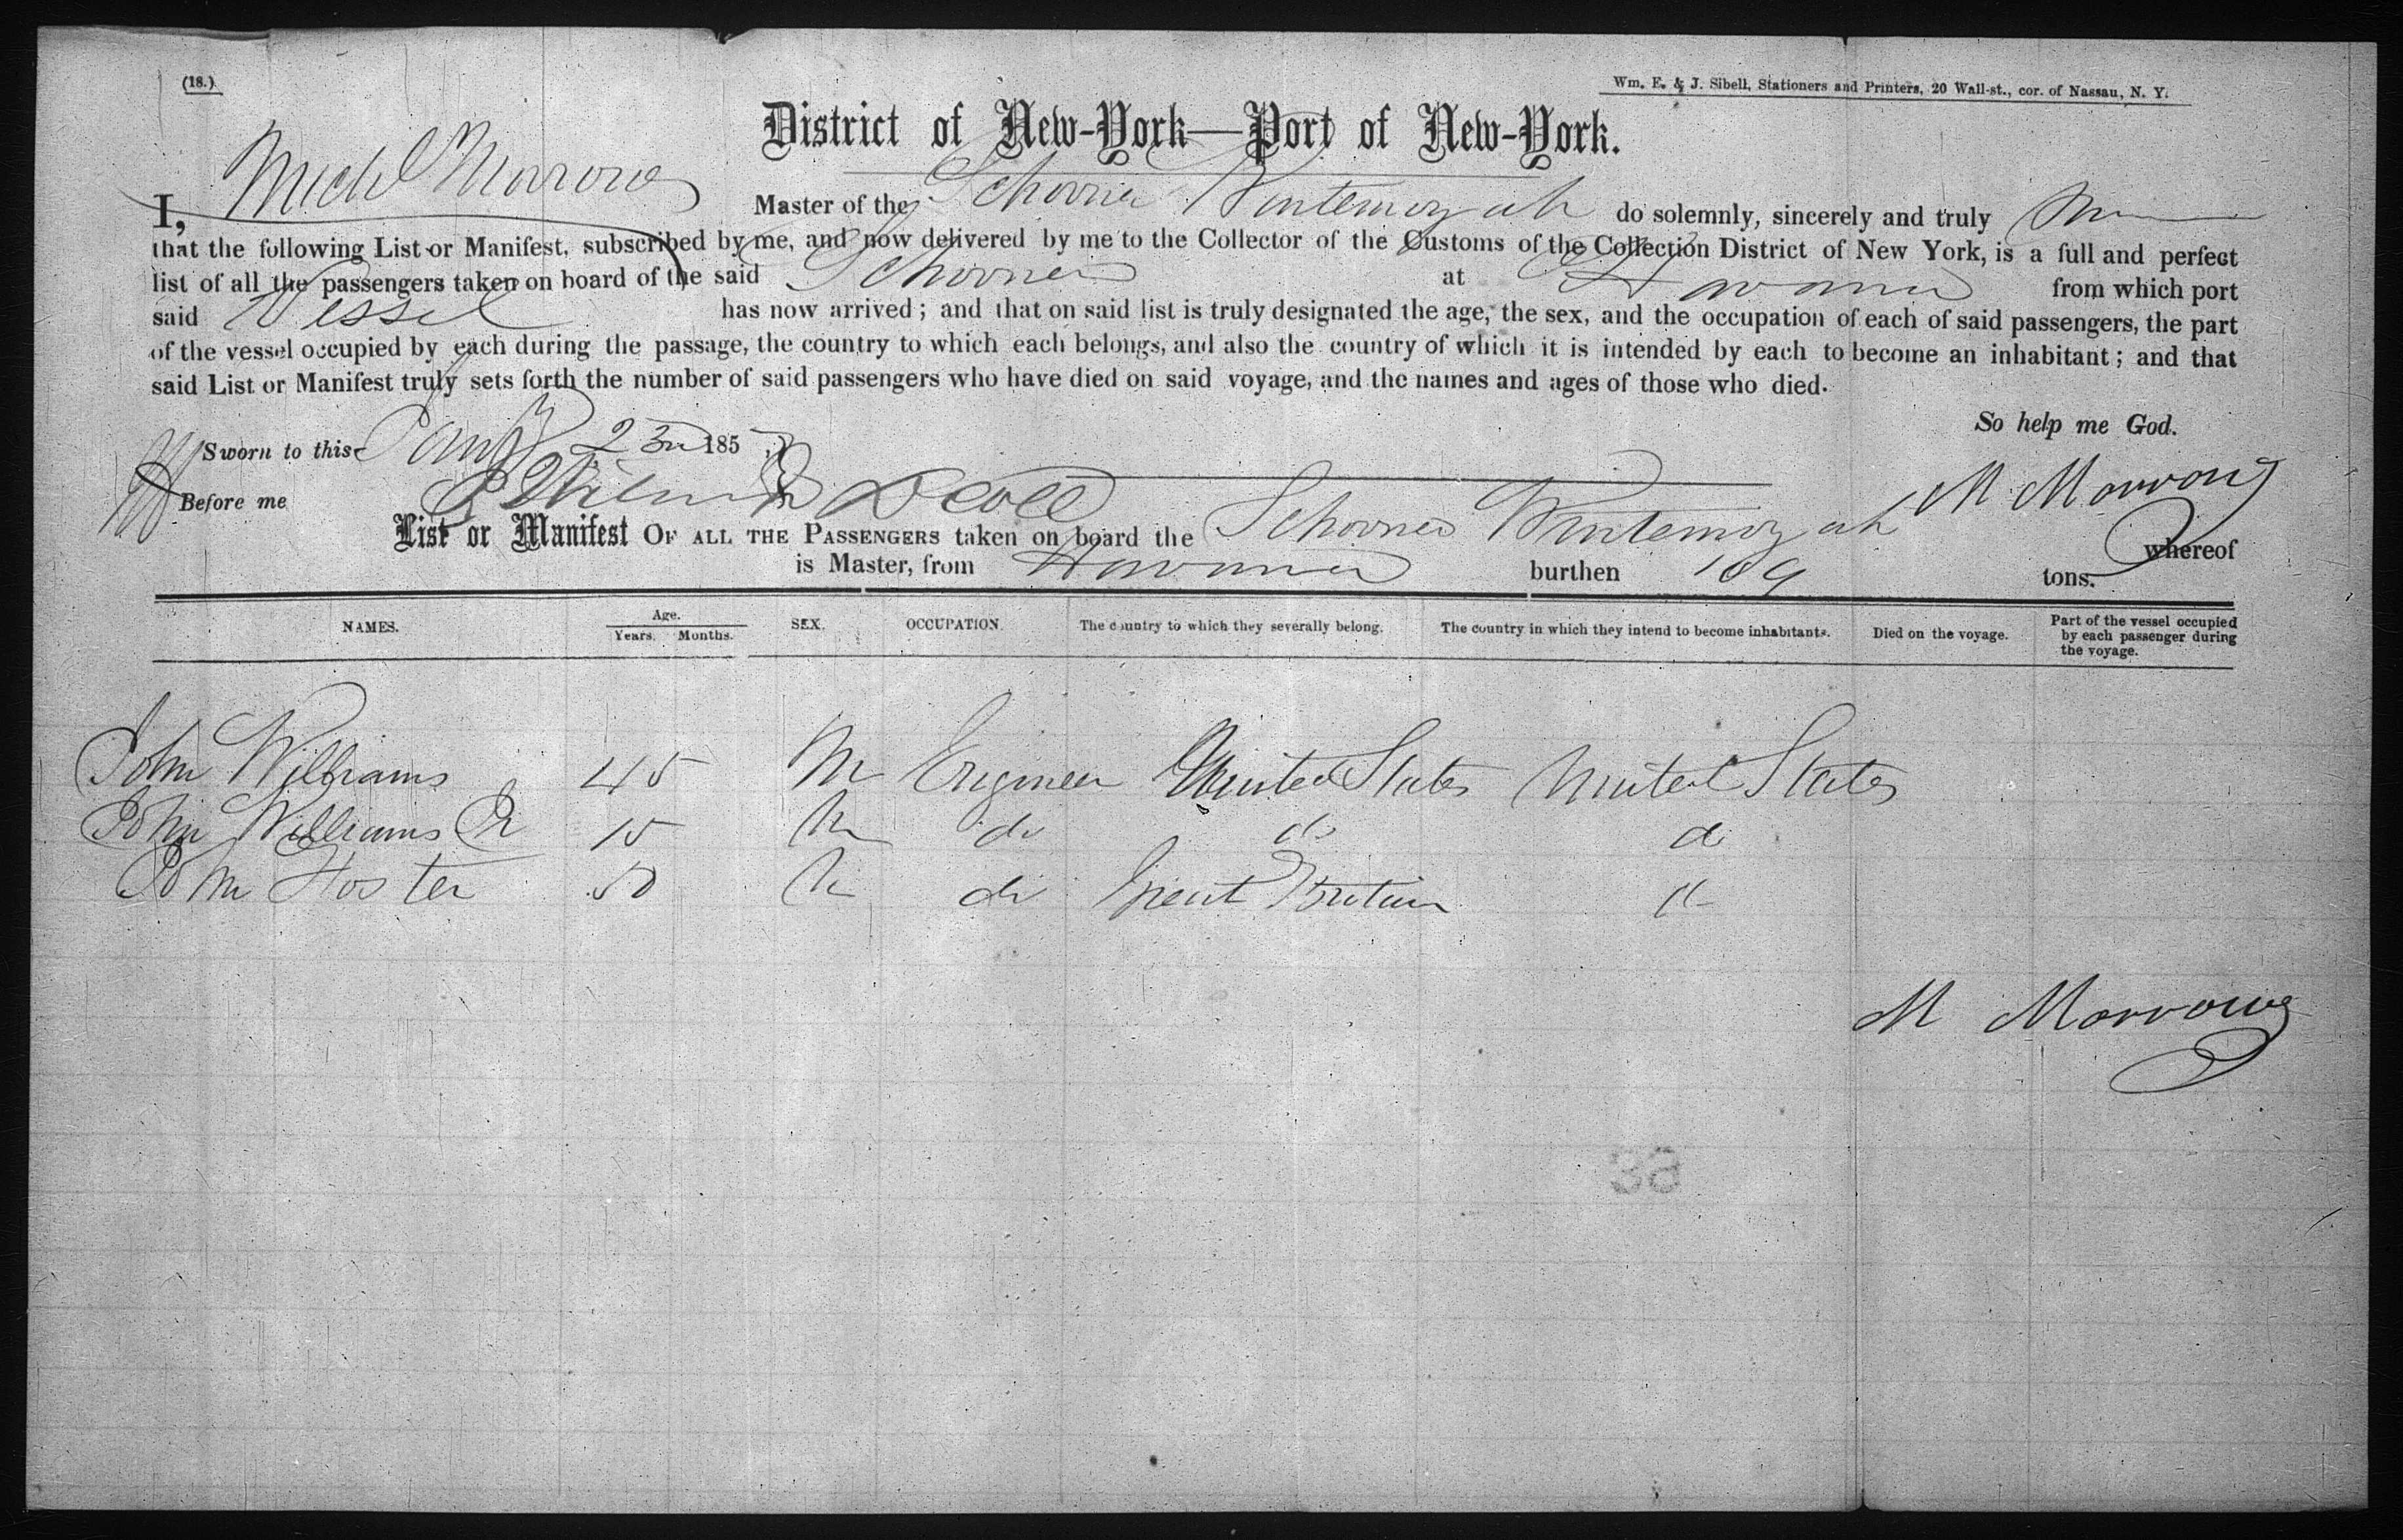 (18.)
Wm. E. & J. Sibell, Stationers and Printers, 20 Wall-st., cor. of Nassau, N. Y.
District of New-York—Port of New-York.
I, Michl Morrow Master of the Schooner do solemnly, sincerely and truly
that the following List or Manifest, subscribed by me, and now delivered by me to the Collector of the Customs of the Collection District of New York, is a full and perfect
list of all the passengers taken on board of the said Schooner at Havana from which port
said Vessel has now arrived; and that on said list is truly designated the age, the sex, and the occupation of each of said passengers, the part
of the vessel occupied by each during the passage, the country to which each belongs, and also the country of which it is intended by each to become an inhabitant; and that
said List or Manifest truly sets forth the number of said passengers who have died on said voyage, and the names and ages of those who died.
So help me God.
Sworn to this 23 185
Before me M Morrow
List or Manifest OF ALL THE PASSENGERS taken on board the Schooner whereof
is Master, from Havana burthen 109 tons.
NAMES. Age. Years. Months. SEX. OCCUPATION. The country to which they severally belong. The country in which they intend to become inhabitants. Died on the voyage. Part of the vessel occupied by each passenger during the voyage.
John Williams 45 M Engineer United States United States
John Williams Jr 15 M do do do
John Foster 50 M do Great Britain
M Morrow
38